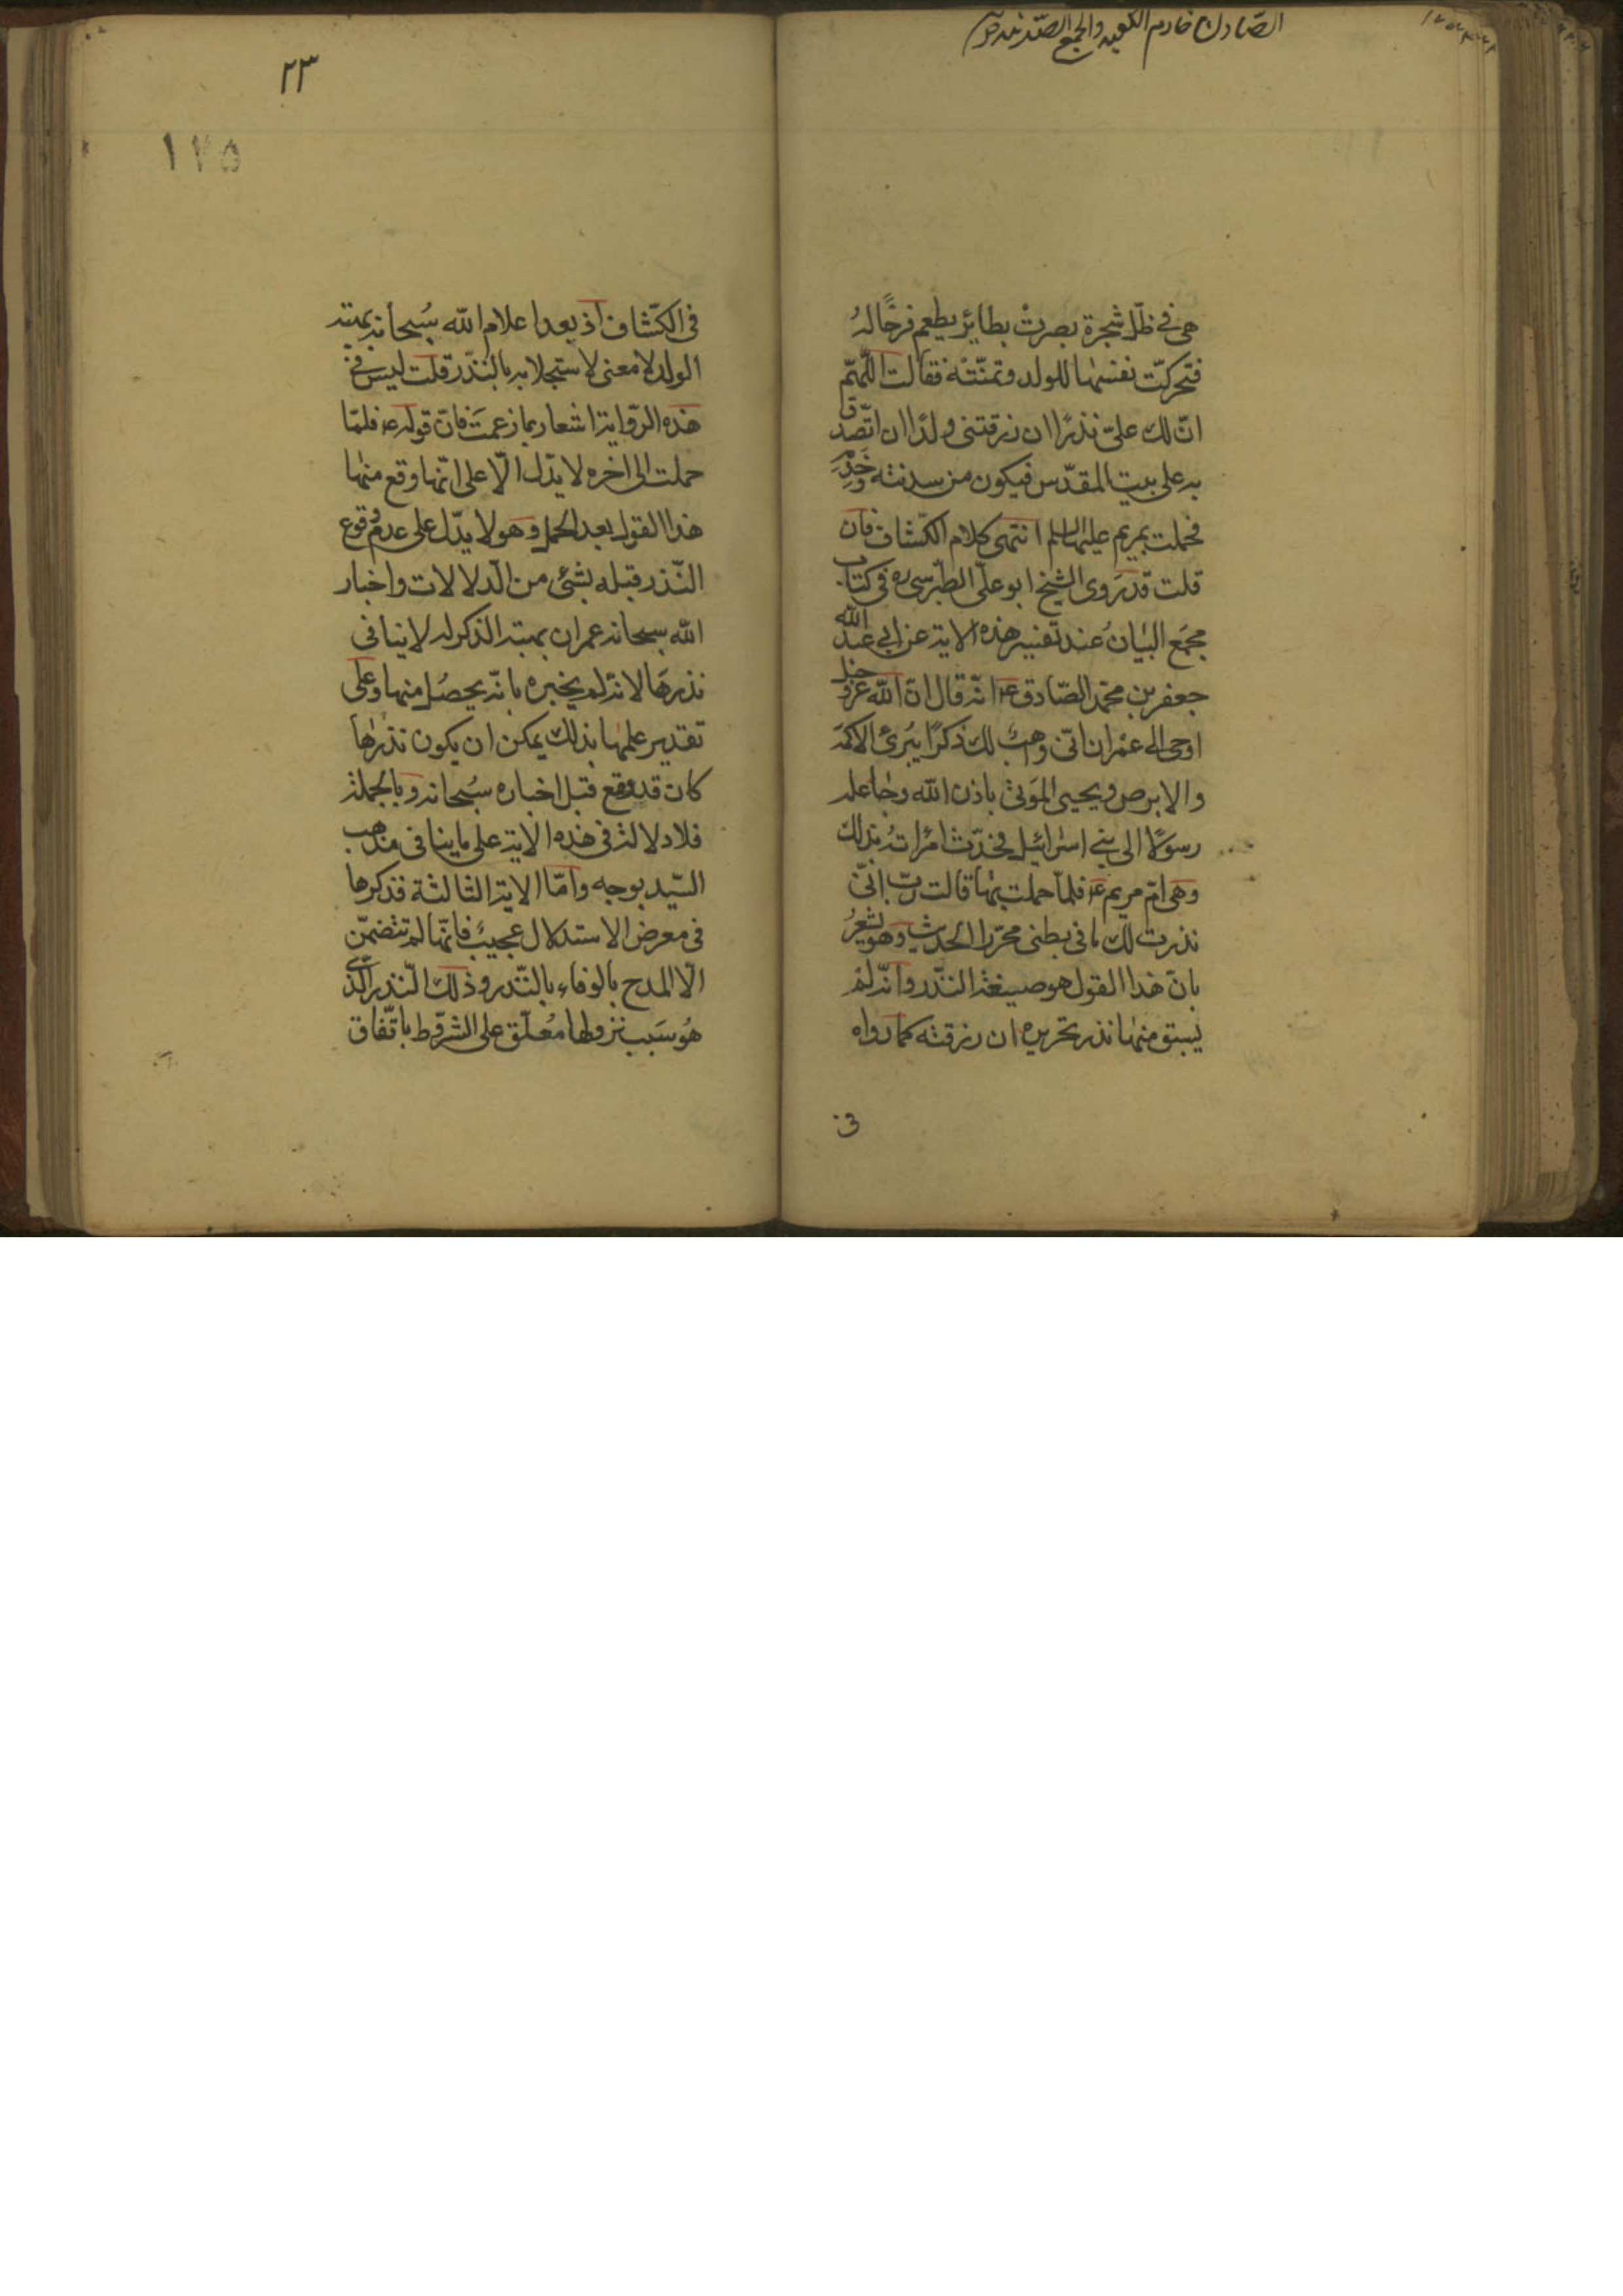 هى فى ظلّ شجرة بصرت بطائر يطعم فرخًا له
فتحرّكت نفسها للولد وتمنّته فقالت اللّهمّ
انّ لك علىّ نذرًا ان رزقتنى ولدًا ان اتّصدّق
به على بيت المقدّس فيكون من سدنته وخَدَمِه
فحملت بمريم عليها السلم انتهى كلام الكشّاف فان
قلت قد رَوى الشيخ ابو علىّ الطّبرسى ره فى كتاب
مجمَع البيَان عند تفسير هذه الاية عن ابى عبد الله
جعفر بن محمّد الصّادق ع انّه قال انّ الله عزّ وجل
اوحى الى عمْران انّى وهبٌ لك ذكرًا يُبرئ الاكمه
والابرص ويحيى المَوتى باذن الله وجاعله
رسوًلا الى بنى اسرائيل فحدّث امراته بذلك
وهى امّ مريم ع فلمّا حملت بها قالت ربّ انّى
نذرت لك ما فى بطنى محرّرا الحديث وهو يشعِرُ
بانّ هذا القول هو صيغة النّذر وانّه لم
يسبق منها نذر تحريره ان رزقته كما رواه
فى
٢٣
١٧٥
فى الكشّاف اذ بعد اعلام الله سُبحانه بهبته
الولد لا معنى لاستجلابه بالنّذر قلت ليس فى
هذه الرّواية اشعار بما زعمتَ فانّ قوله ع فلمّا
حملت الى اخره لا يدّل الّا على انّها وقع منها
هذا القول بعد الحمل وهو لا يدّل على عدم وقوع
النّذر قبله بشئ من الدلالات واخبار
الله سبحانه عمران بهبته الذكر له لا ينافى
نذرها لانّه لم يخبره بانّه يحصُل منها وعلى
تقدير علمها بذلك يمكن ان يكون نذرها
كان قد وقع قبل اخباره سُبحانه وبالجملة
فلا دلالة فى هذه الاية على ما ينافى مذهب
السّيد بوجه وامّا الاية الثالثة فذكرها
فى معرض الاستدلال عجيبٌ فانّها لم تتضمّن
الّا المدح بالوفاء بالنّذر وذلك النّذر الّذى
هُو سَبب نزولها مُعلّق على الشرط باتّفاق